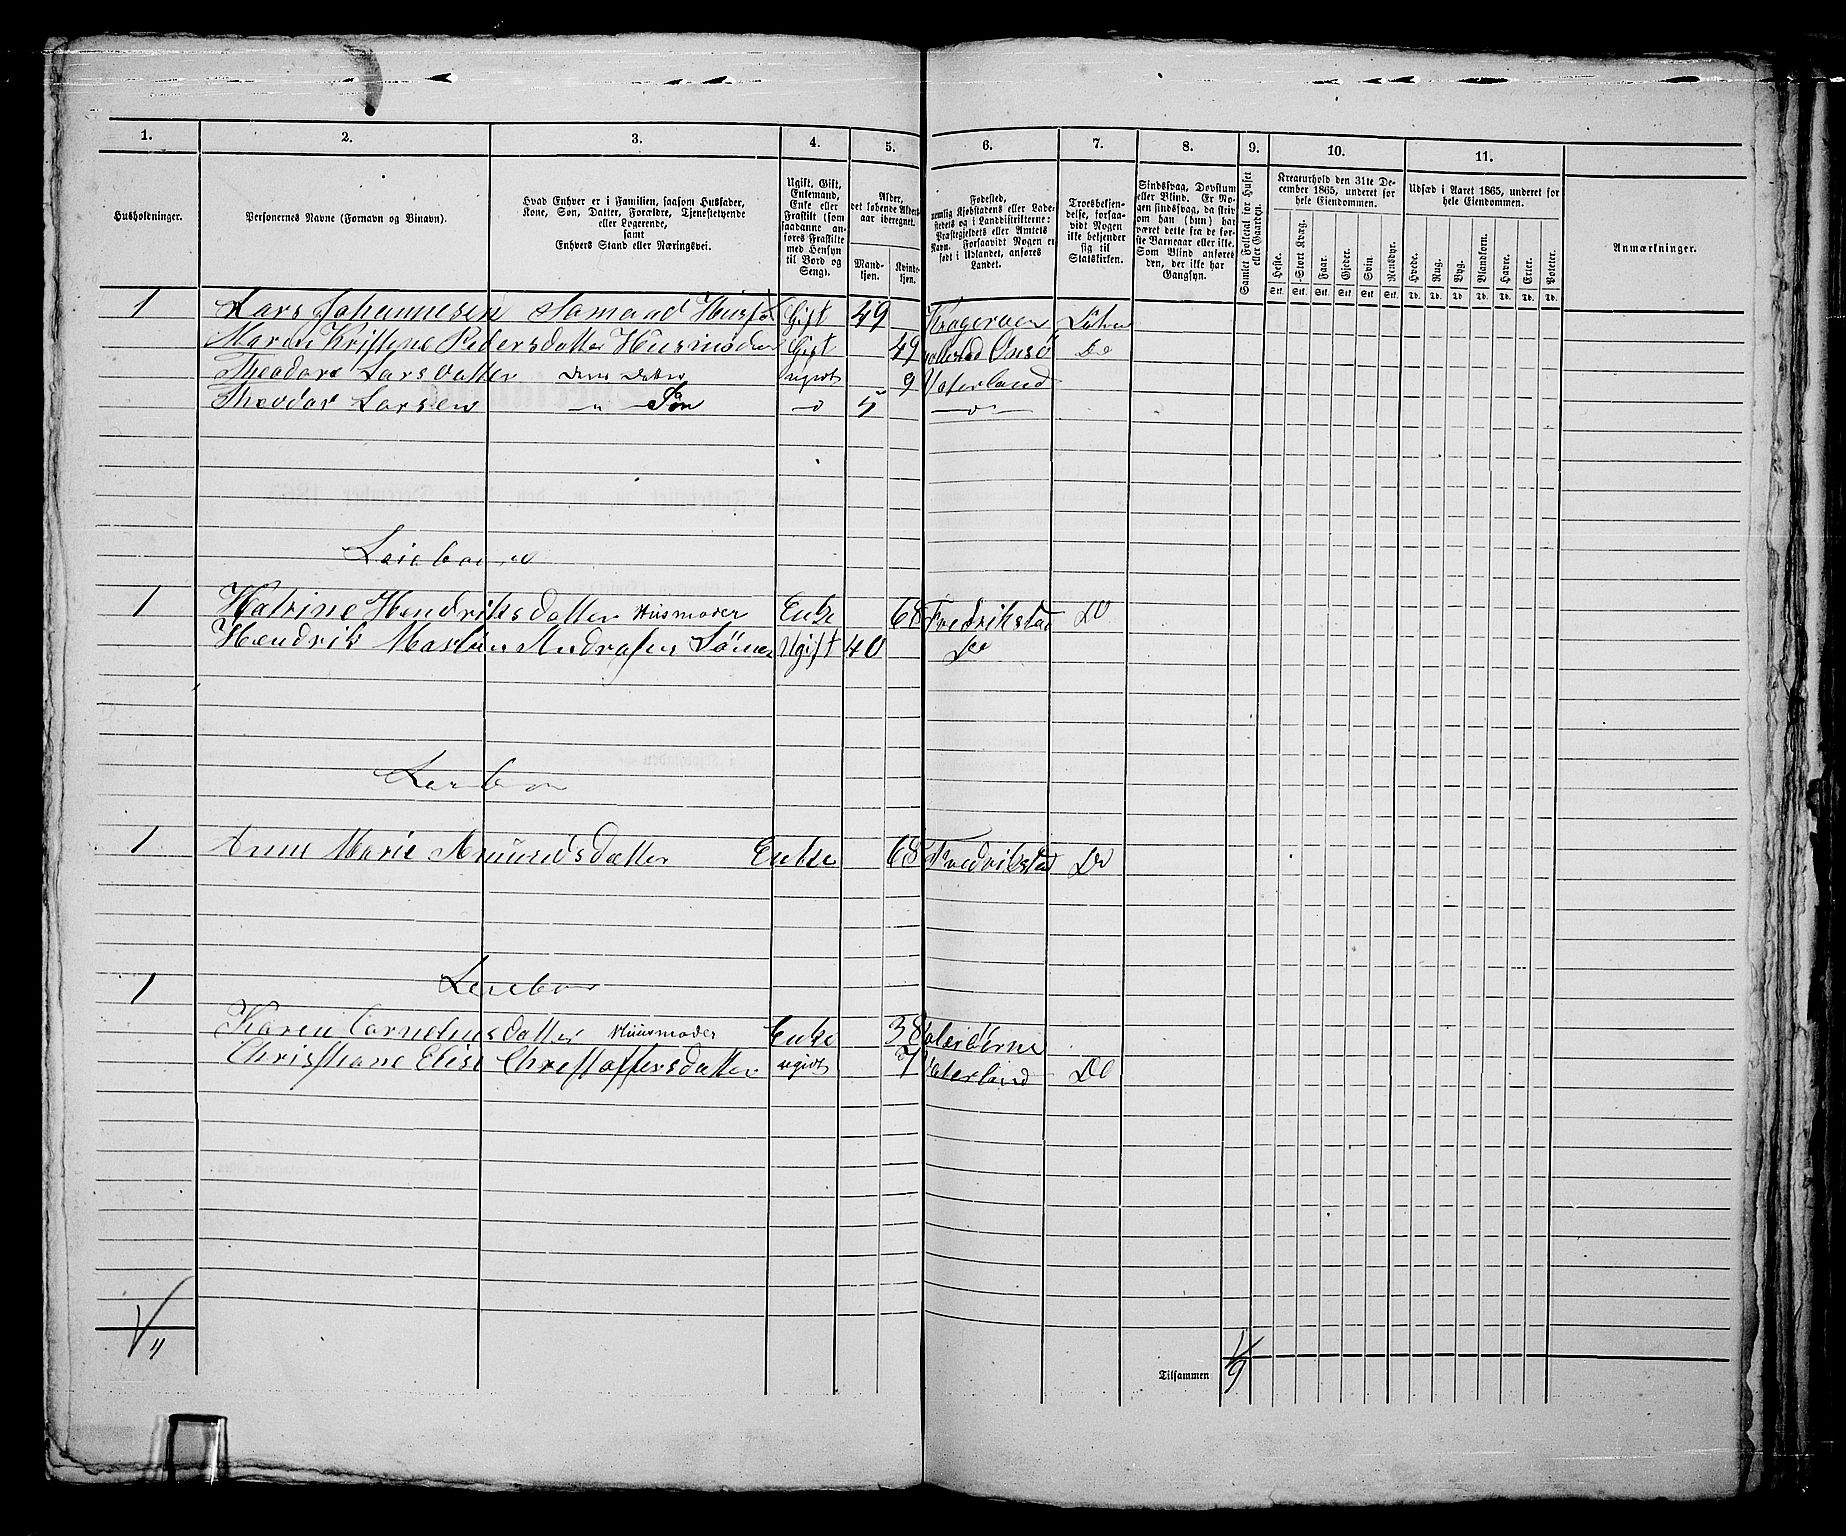 1. 2. 3. 4. 5. 6. 7. 8. 9. 10. 11.
Husholdninger.
Personernes Navne (Fornavn og Binavn).
Hvad Enhver er i Familien, saasom Husfader,
Kone, Søn, Datter, Forældre, Tjenestetyende
eller Logerende,
samt
Enhvers Stand eller Næringsvei.
Ugift, Gift,
Enkemand,
Enke eller
Fraskilt (som
saadanne an-
føres Fraskilte
med Hensyn
til Bord og
Seng).
Alder,
det løbende Alders-
aar iberegnet.
Mand-
kjøn.
Kvinde-
kjøn.
Fødested,
nemlig Kjøbstadens eller Lade-
stedets og i Landdistrikterne:
Præstegjeldets eller Amtets
Navn. Forsaavidt Nogen er
født i Udlandet, anføres
Landet.
Troesbekjen-
delse, forsaa-
vidt Nogen
ikke bekjender
sig til
Statskirken.
Sindssvag, Døvstum
eller Blind. Er No-
gen sindssvag, da skriv
om han (hun) har
været dette fra de før-
ste Barneaar eller ikke.
Som Blind anføres
den, der ikke har
Gangsyn.
Samlet Folketal for Huset
eller Gaarden.
Kreaturhold den 31te De-
cember 1865, underet for
hele Eiendommen.
Heste. Stort Kvæg. Faar. Gjeder. Svin. Rensdyr.
Stk. Stk. Stk. Stk. Stk. Stk.
Udsæd i Aaret 1865, underet for
hele Eiendommen.
Hvede. Rug. Byg. Blandkorn. Havre. Erter. Poteter.
Td. Td. Td. Td. Td. Td. Td.
Anmærkninger.
1 Lars Johannesen Gift 49 Kragerøen
Maren Kristine Pedersdatter Husmoder Gift 49 Onsø Do
Theodore Larsdatter Datter ugivt 9 Vaterland
Theodor Larsen — „ — Søn —o 5 —o—
1 Katrine Hendriksdatter Husmoder Enke 68 Fredrikstad Do
Hændrik Ugift 40 Do
1 Anne Marie Amundsdatter Enke 68 Fredrikstad Do
1
Karen Corneliusdatter Huusmoder Enke 38
Christiane Elise Christoffersdatter ugivt 7 Vaterland Do
Tilsammen 9